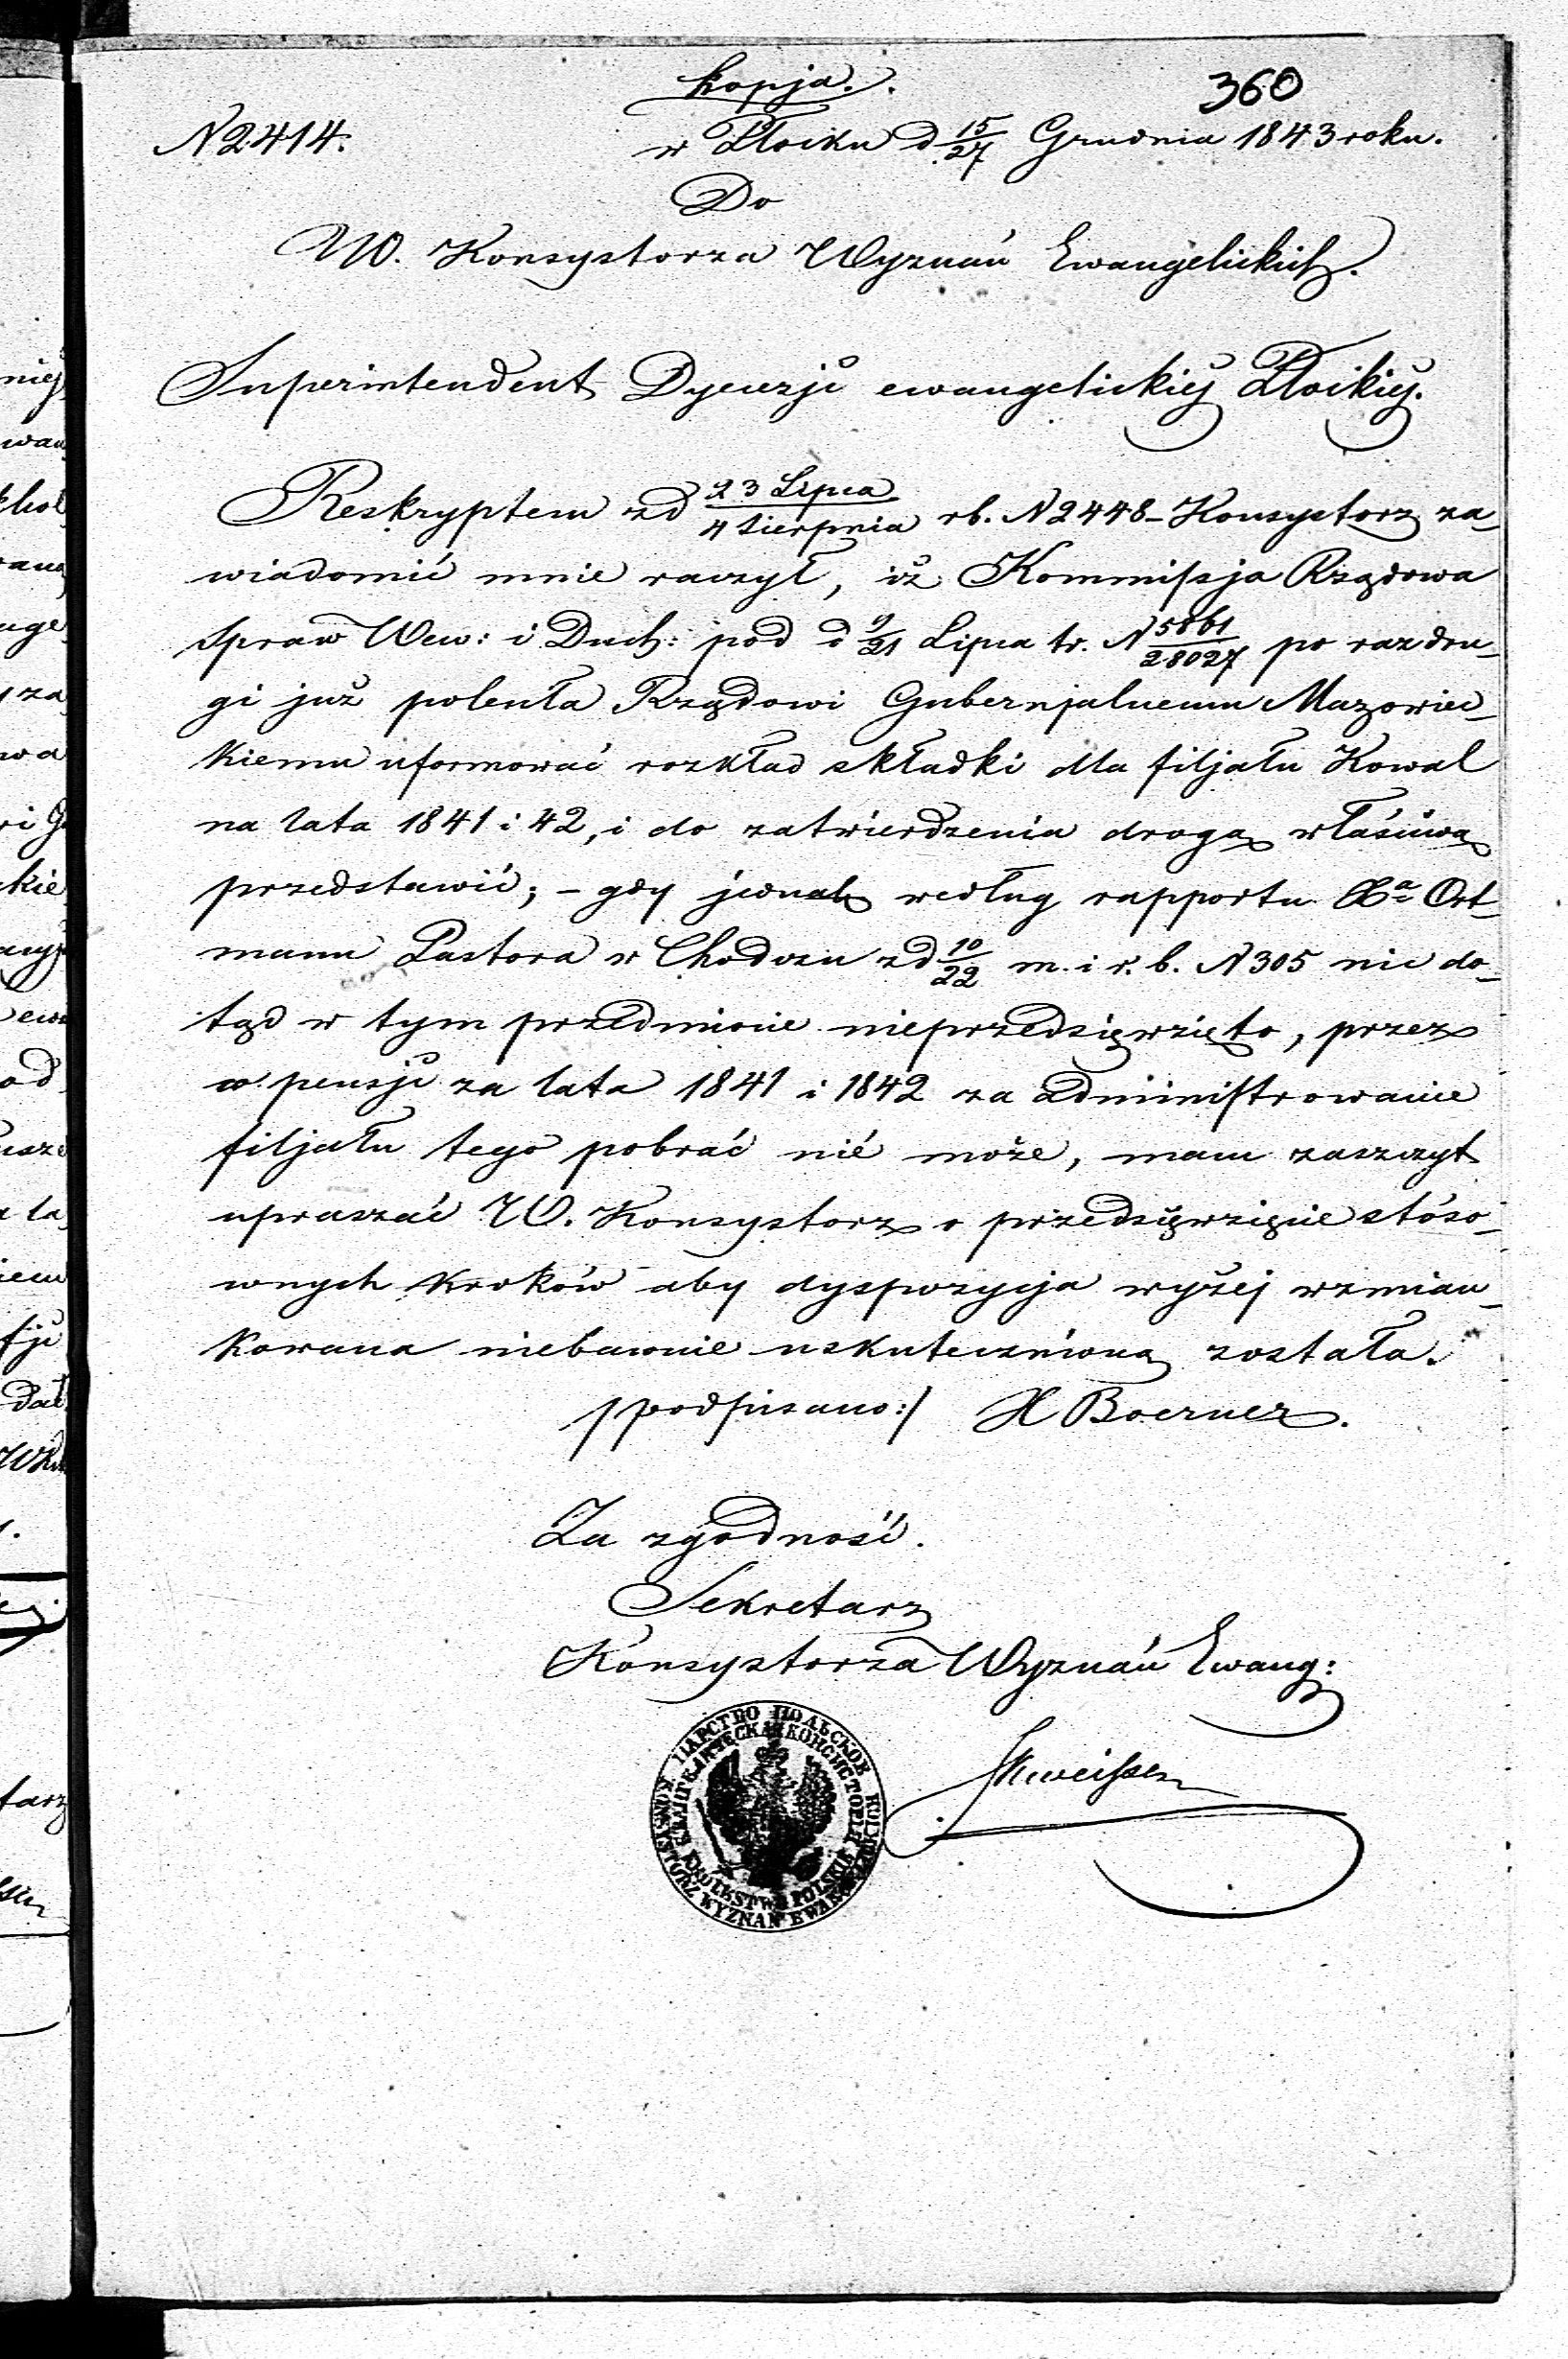 kopja.
360
N 2414.
w Płocku d 15/27 Grudnia 1843 roku.
Do
W. Konsystorza Wyznań Ewangelickich.
Superintendent Dyecezji ewangelickiej Płockiej.
Reskryptem z d 23 Lipca/4 Sierpnia r b. N 2448 - Konsystorz za-
wiadomić mnie raczył, iż Kommissja Rządowa
Spraw Wew: i Duch: pod d 9/21 Lipca t r. N 5861/28027 po raz dru-
gi już poleciła Rządowi Gubernjalnemu Mazowiec-
kiemu uformować rozkład składki dla filjału Kowal
na lata 1841 i 42, i do zatwierdzenia drogą właściwą
przedstawić; - gdy jednak według rapportu Xa Ort-
mann Pastora w Chodczu z d 10/22 m. i r. b. N 305 nic do-
tąd w tym przedmiocie nieprzedsięwzięto, przez
co pensji za lata 1841 i 1842 za administrowanie
filjału tego pobrać nié może, mam zaszczyt
upraszać W. Konsystorz o przedsięwzięcie stóso-
wnych kroków aby dyspozycja wyżej wzmian-
kowana niebawnie uskutecznioną została.
/podpisano:/ X Boerner.
Za zgodność.
Sekretarz
Konsystorza Wyznań Ewang:
ЦАРСТВО ПОЛЬСКОЕ
ЕВАНГЕЛИЧЕСКАЯ КОНСИСТОРІЯ
KRÓLESTWO POLSKIE
KONSYSTORZ WYZNAŃ EWANGELICKICH